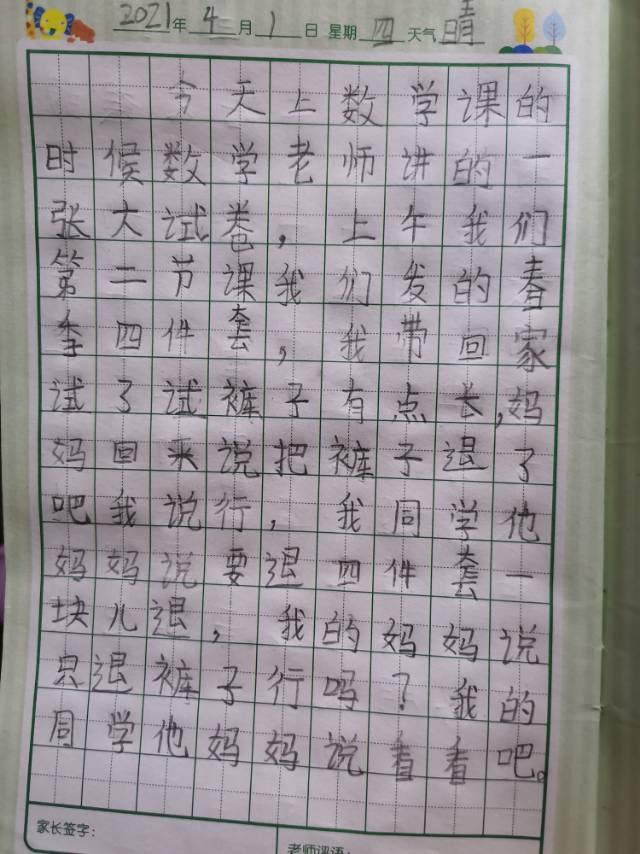 2021年4月1日 星期四天气晴
今天上数学课的
时候数学老师讲的一
张大试卷，上午我们
第二节课我们发的春
季四件套，我带回家
试了试裤子有点长，妈
妈回来说把裤子退了
吧我说行，我同学他
妈妈说要退四件套一
块儿退，我的妈妈说
只退裤子行吗？我的
同学他妈妈说看看吧。
家长签字：
老师评语：